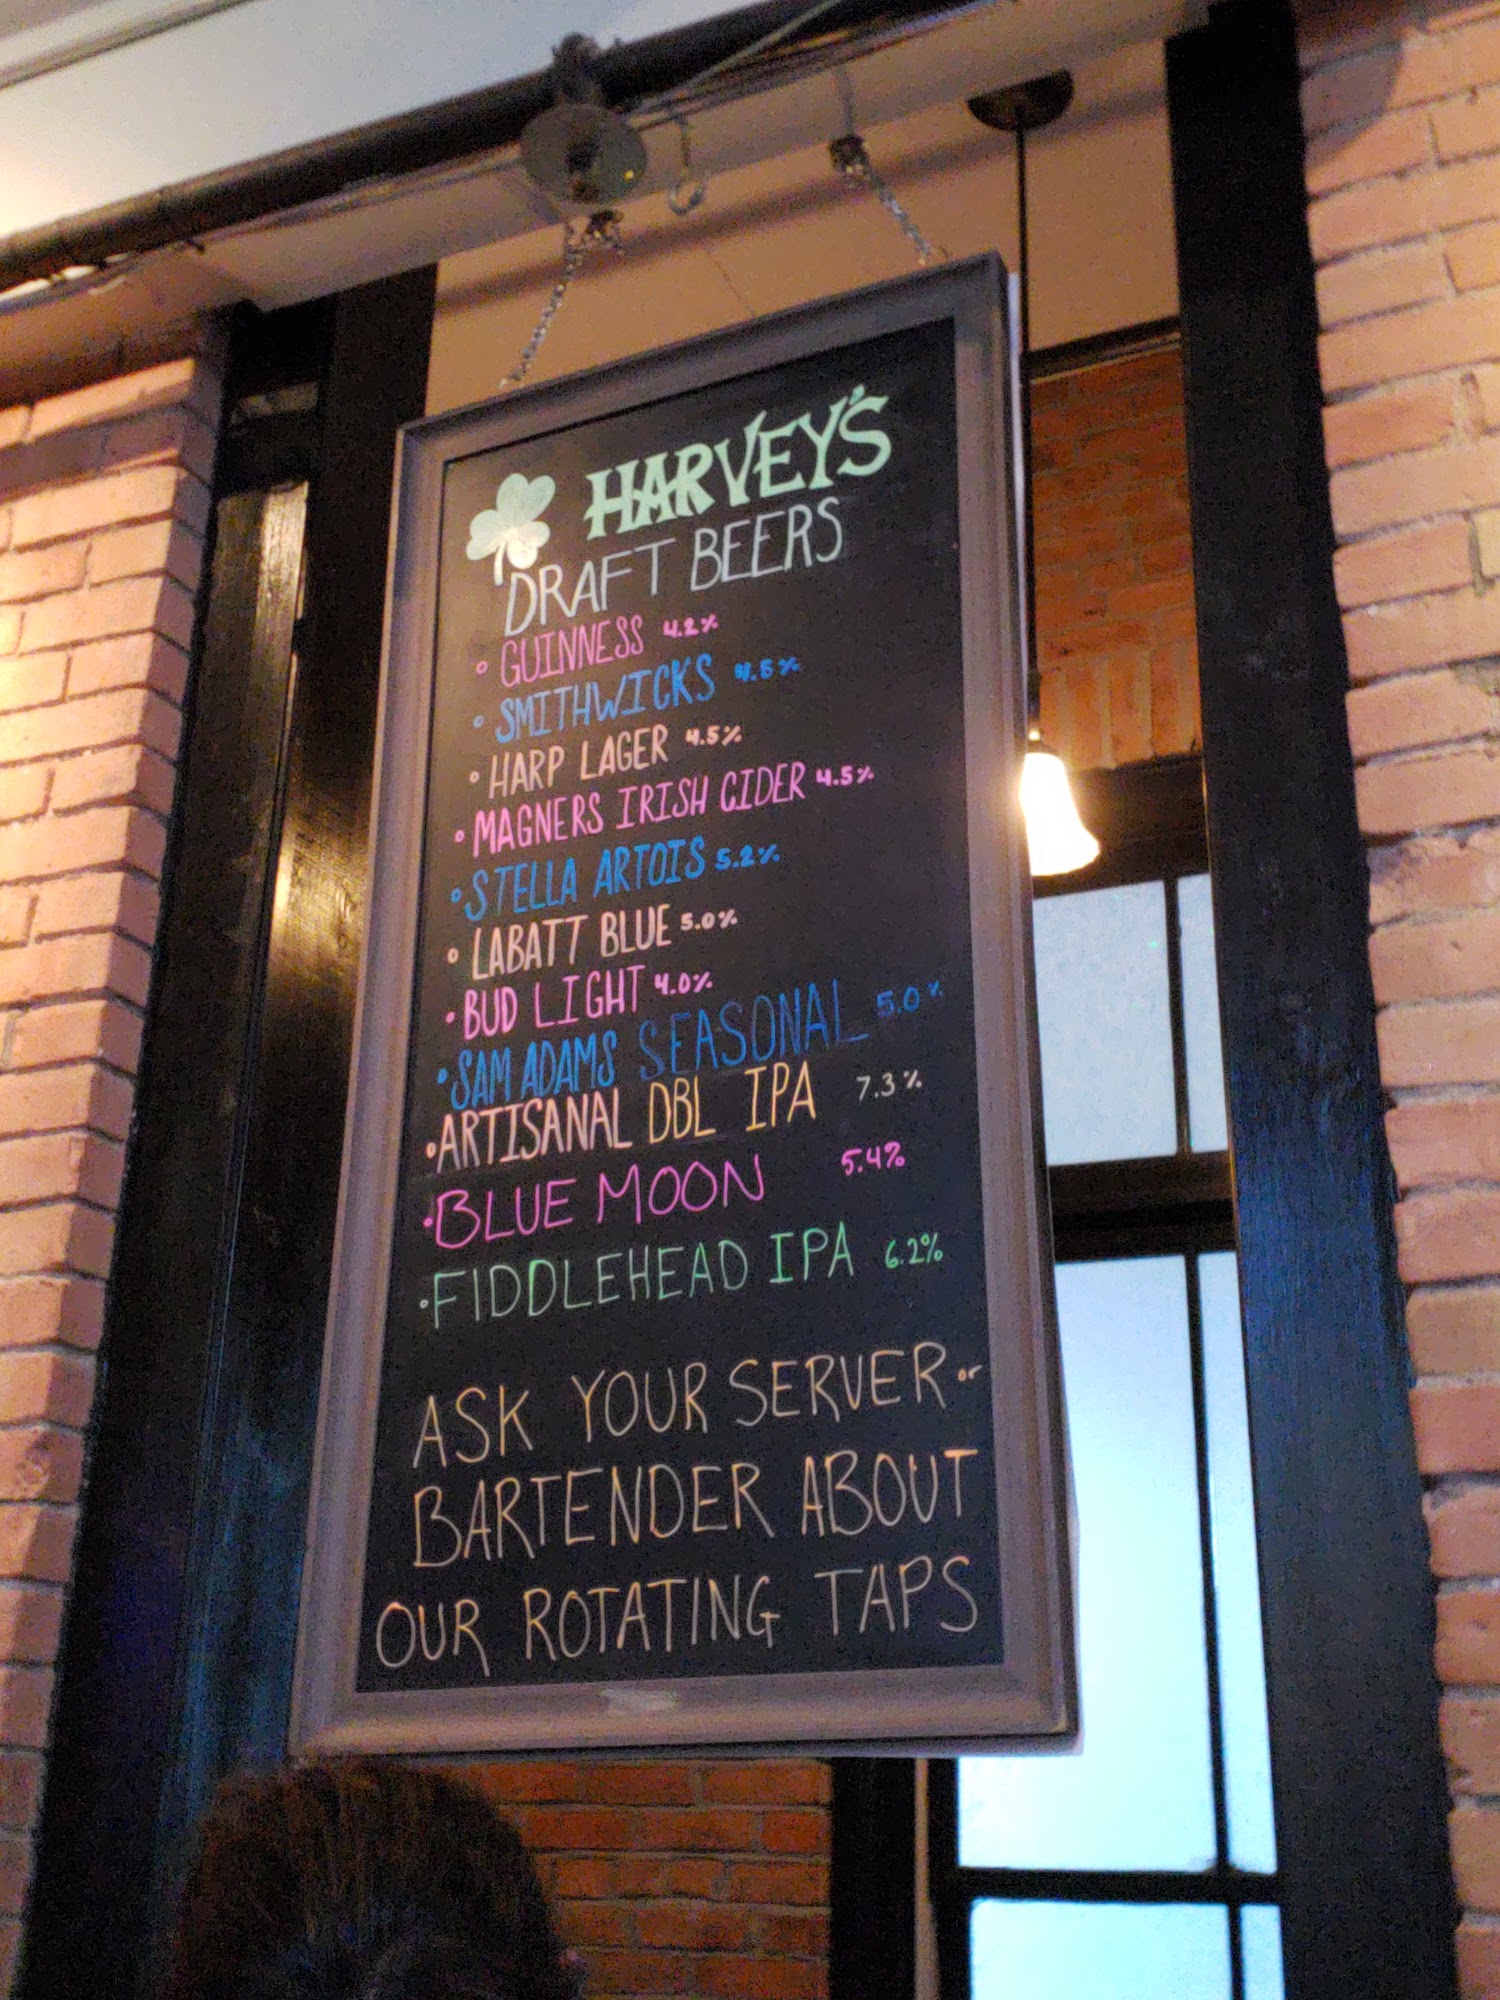 HARVEY'S
DRAFT BEERS
• GUINNESS 4.2%
• SMITHWICKS 4.5%
• HARP LAGER 4.5%
• MAGNERS IRISH CIDER 4.5%
• STELLA ARTOIS 5.2%
• LABATT BLUE 5.0%
• BUD LIGHT 4.0%
• SAM ADAMS SEASONAL 5.0%
• ARTISANAL DBL IPA 7.3%
• BLUE MOON 5.4%
• FIDDLEHEAD IPA 6.2%
ASK YOUR SERVER or
BARTENDER ABOUT
OUR ROTATING TAPS